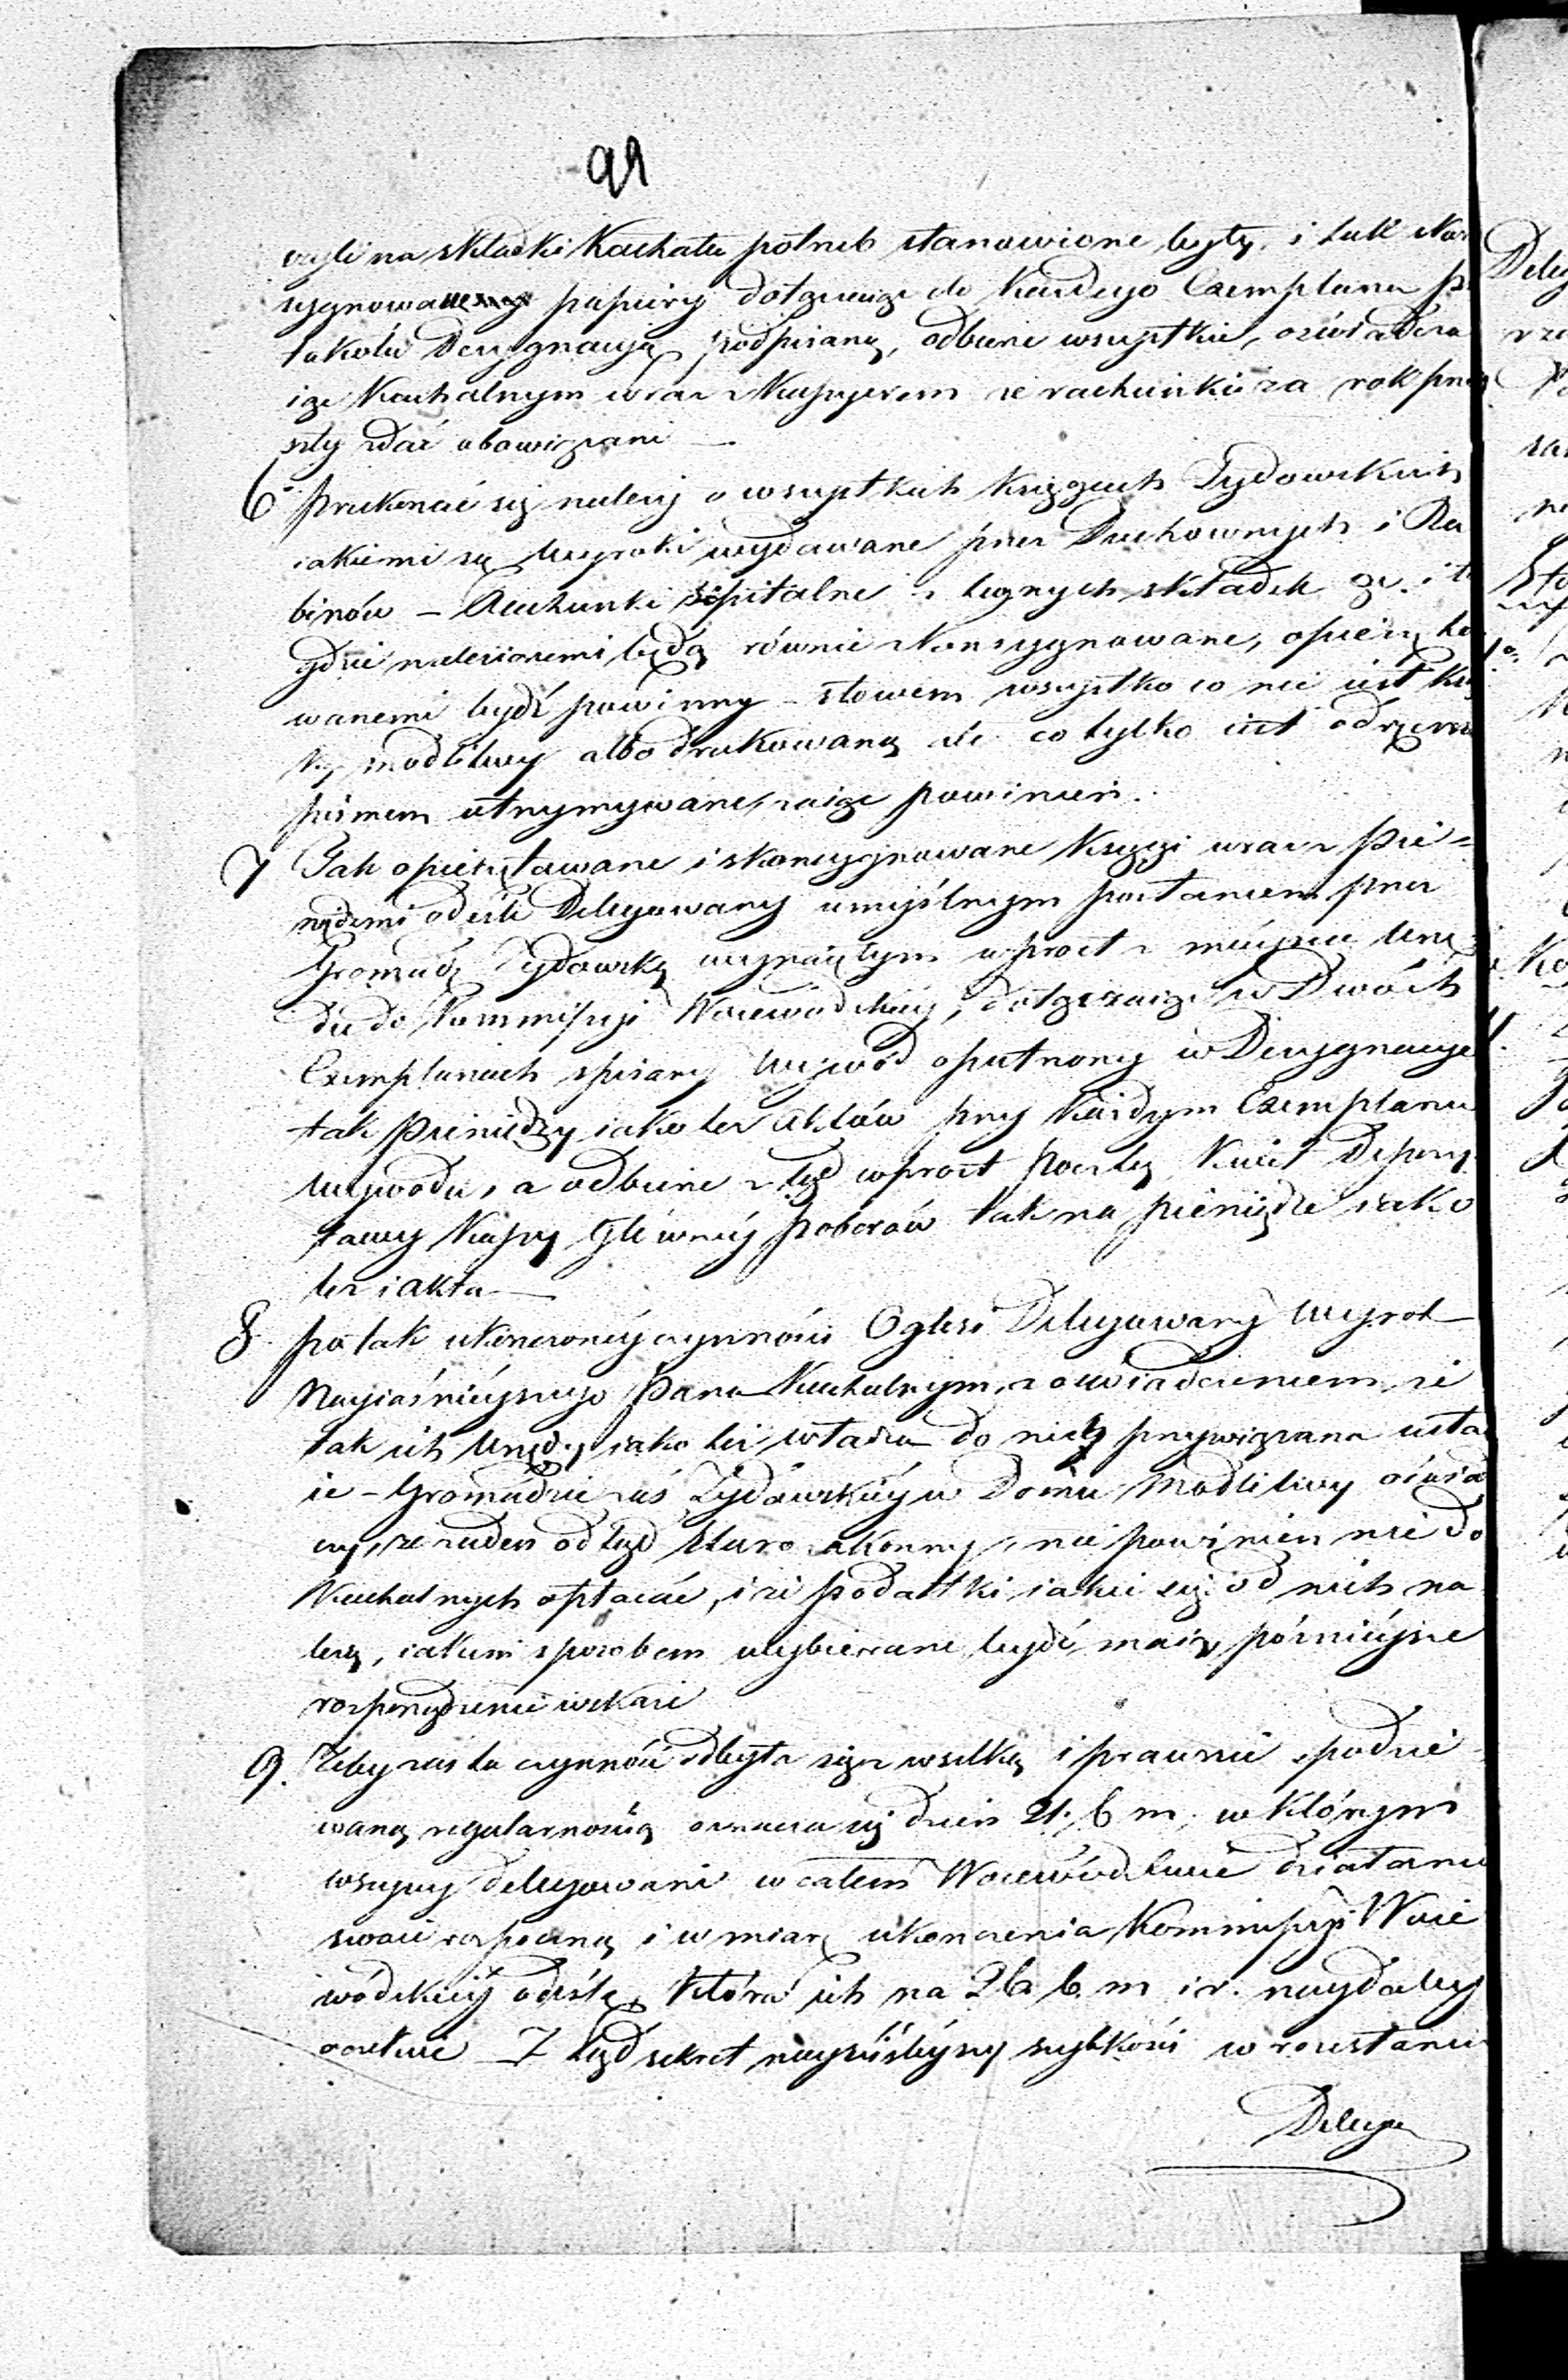 91
czyli na składki Kachału potrzeb stanowione były, i tak skon
sygnowane papiery dołączając do każdego Exemplarza pr
tokołu Desygnacyą podpisaną, odbierze wszystkie, oświadcza
iąc Kachalnym wraz z Kassyerem że rachunki za rok prze
szły zdać obowiązani —
6. Przekonać się należy o wszystkich Księgach Żydowskich
iakiemi są Wyroki wydawane przez Duchownych i Ra
binów – Rachunki szpitalne z tegnych składek &c. i te
gdzie nalezionemi będą równie skonsygnowane, opieczęto
wanemi bydź powinny – słowem wszystko co nie iest ksią
żką modlitwy albo drukowaną ale co tylko iest odręcznem
pismem utrzymywane, zaiąć powinien.
7 Tak opieczętowane i skonsygnowane Księgi wraz z pie=
niędzmi odeśle Delegowany umyślnym posłańcem przez
Gromadę Żydowską wynaiętym wprost z mieysca Urzę
du do Kommissyi Woiewódzkiey, dołączaiąc w Dwóch
Exemplarzach spisany Wywód opatrzony w Desygnacye
tak Pieniędzy iako też aktów przy każdym Exemplarzu
Wywodu, a odbierze z tąd wprost pocztą Kwit Depozy
towy Kassy Główney poborów tak na pieniądze iako
też i akta —
8. po tak ukończoney czynności Ogłosi Delegowany Wyrok
Nayiaśnieyszego Pana Kachalnym, z oświadczeniem, że
tak ich Urzędy, iako też władza do nich przywiązana usta
ie – Gromadzie zaś Żydowskiey w Domu Modlitwy oświad
czy, że żaden odtąd Starozakonny, nie powinien nic do
Kachalnych opłacać, i że podatki iakie się od nich na
leżą, iakim sposobem wybierane bydź maią, pózniéysze
rozporządzenie wskaże
9. Żeby zaś ta czynność odbyta się z wszelką i prawnie spodzie
waną regularnością oznacza się dzień 21. b m. w którym
wszyscy delegowani w całem Woiewództwie działanie
swoie rozpoczną i w miarę ukończenia Kommissyi Woie
wódzkiey odeślą, która ich na 26 b. m i r. naydaley
oczekuie – Z tąd sekret nayściśleyszy szybkości w rozesłaniu
Delego